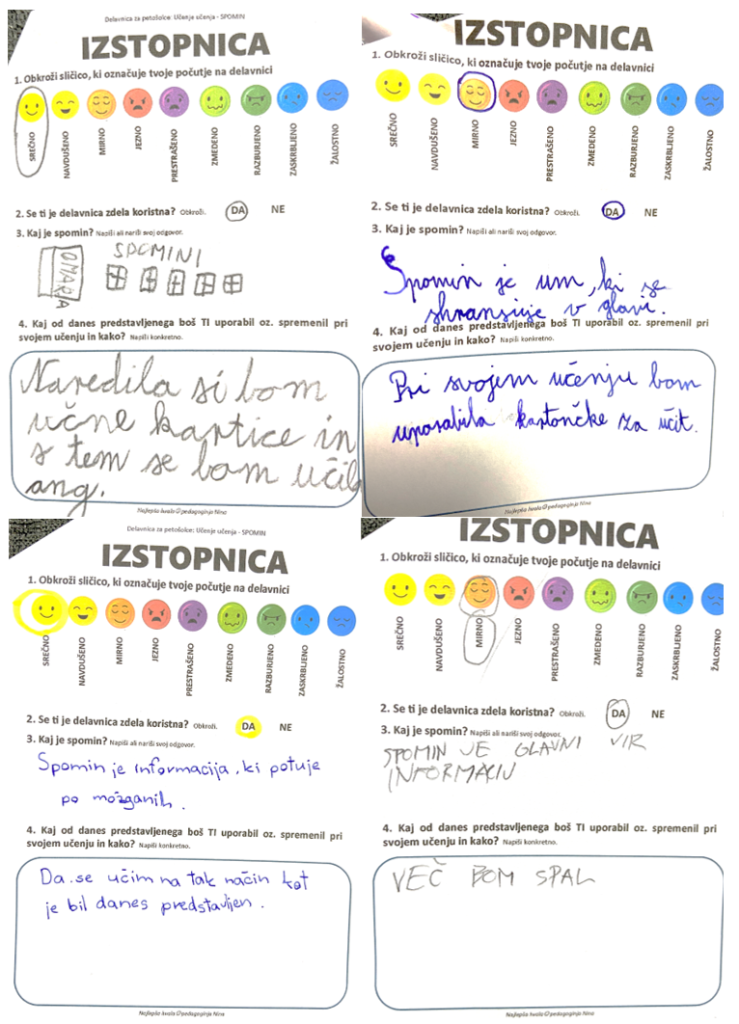 Delavnica za petošolce: Učenje učenja - SPOMIN
IZSTOPNICA
1. Obkroži sličico, ki označuje tvoje počutje na delavnici
SREČNO
NAVDUŠENO
MIRNO
JEZNO
PRESTRAŠENO
ZMEDENO
RAZBURJENO
ZASKRBLJENO
ŽALOSTNO
2. Se ti je delavnica zdela koristna? Obkroži. DA NE
3. Kaj je spomin? Napiši ali nariši svoj odgovor.
OMARA
SPOMINI
4. Kaj od danes predstavljenega boš TI uporabil oz. spremenil pri
svojem učenju in kako? Napiši konkretno.
Naredila si bom
učne kartice in
s tem se bom učila
ang.
Najlepša hvala ☺ pedagoginja Nina
IZSTOPNICA
1. Obkroži sličico, ki označuje tvoje počutje na delavnici
SREČNO
NAVDUŠENO
MIRNO
JEZNO
PRESTRAŠENO
ZMEDENO
RAZBURJENO
ZASKRBLJENO
ŽALOSTNO
2. Se ti je delavnica zdela koristna? Obkroži. DA NE
3. Kaj je spomin? Napiši ali nariši svoj odgovor.
Spomin je um, ki se
shranjuje v glavi.
4. Kaj od danes predstavljenega boš TI uporabil oz. spremenil pri
svojem učenju in kako? Napiši konkretno.
Pri svojem učenju bom
uporabila kartončke za učit.
Najlepša hvala ☺ pedagoginja Nina
Delavnica za petošolce: Učenje učenja - SPOMIN
IZSTOPNICA
1. Obkroži sličico, ki označuje tvoje počutje na delavnici
SREČNO
NAVDUŠENO
MIRNO
JEZNO
PRESTRAŠENO
ZMEDENO
RAZBURJENO
ZASKRBLJENO
ŽALOSTNO
2. Se ti je delavnica zdela koristna? Obkroži. DA NE
3. Kaj je spomin? Napiši ali nariši svoj odgovor.
Spomin je informacija, ki potuje
po možganih.
4. Kaj od danes predstavljenega boš TI uporabil oz. spremenil pri
svojem učenju in kako? Napiši konkretno.
Da se učim na tak način kot
je bil danes predstavljen.
Najlepša hvala ☺ pedagoginja Nina
IZSTOPNICA
1. Obkroži sličico, ki označuje tvoje počutje na delavnici
SREČNO
NAVDUŠENO
MIRNO
JEZNO
PRESTRAŠENO
ZMEDENO
RAZBURJENO
ZASKRBLJENO
ŽALOSTNO
2. Se ti je delavnica zdela koristna? Obkroži. DA NE
3. Kaj je spomin? Napiši ali nariši svoj odgovor.
SPOMIN JE GLAVNI VIR
INFORMACIJ
4. Kaj od danes predstavljenega boš TI uporabil oz. spremenil pri
svojem učenju in kako? Napiši konkretno.
VEČ BOM SPAL
Najlepša hvala ☺ pedagoginja Nina